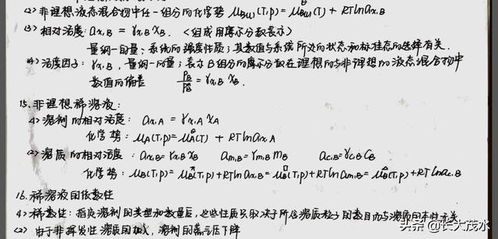 (2) 非理想液态混合物中任一组分的化学势 μB(l)(T,p)=μB(l)(T)+RTlnax,B
(3) 相对活度: ax,B = γx,B xB. <组成用摩尔分数表示>
量纲一的量; 系统的强度性质; 其数值与系统所处的状态和标准态的选择有关.
(4) 活度因子: γx,B. 量纲一的量; 表示B组分的摩尔分数在理想的与非理想的液态混合物中
数值的偏差 PB/PB* = γx,B xB.
15. 非理想稀溶液:
(1) 溶剂的相对活度: ax,A = γx,A xA
化学势: μA(T,p)=μA*(T) + RTlnax,A
(2) 溶质的相对活度: ax,B=γx,B xB am,B=γm,B mB ac,B=γc,B cB
化学势: μB(T,p)=μB(T,p)+RTlnax,B=μB(T,p)+RTlnam,B=μB(T,p)+RTlnac,B
16. 稀溶液的依数性
(1) 依数性: 指定溶剂的类型和数量后, 这些性质只取决于所含溶质粒子的数目而与溶质的本性无关
(2) 由于非挥发性溶质的加入, 溶剂的蒸气压下降
头条 @长大茂水